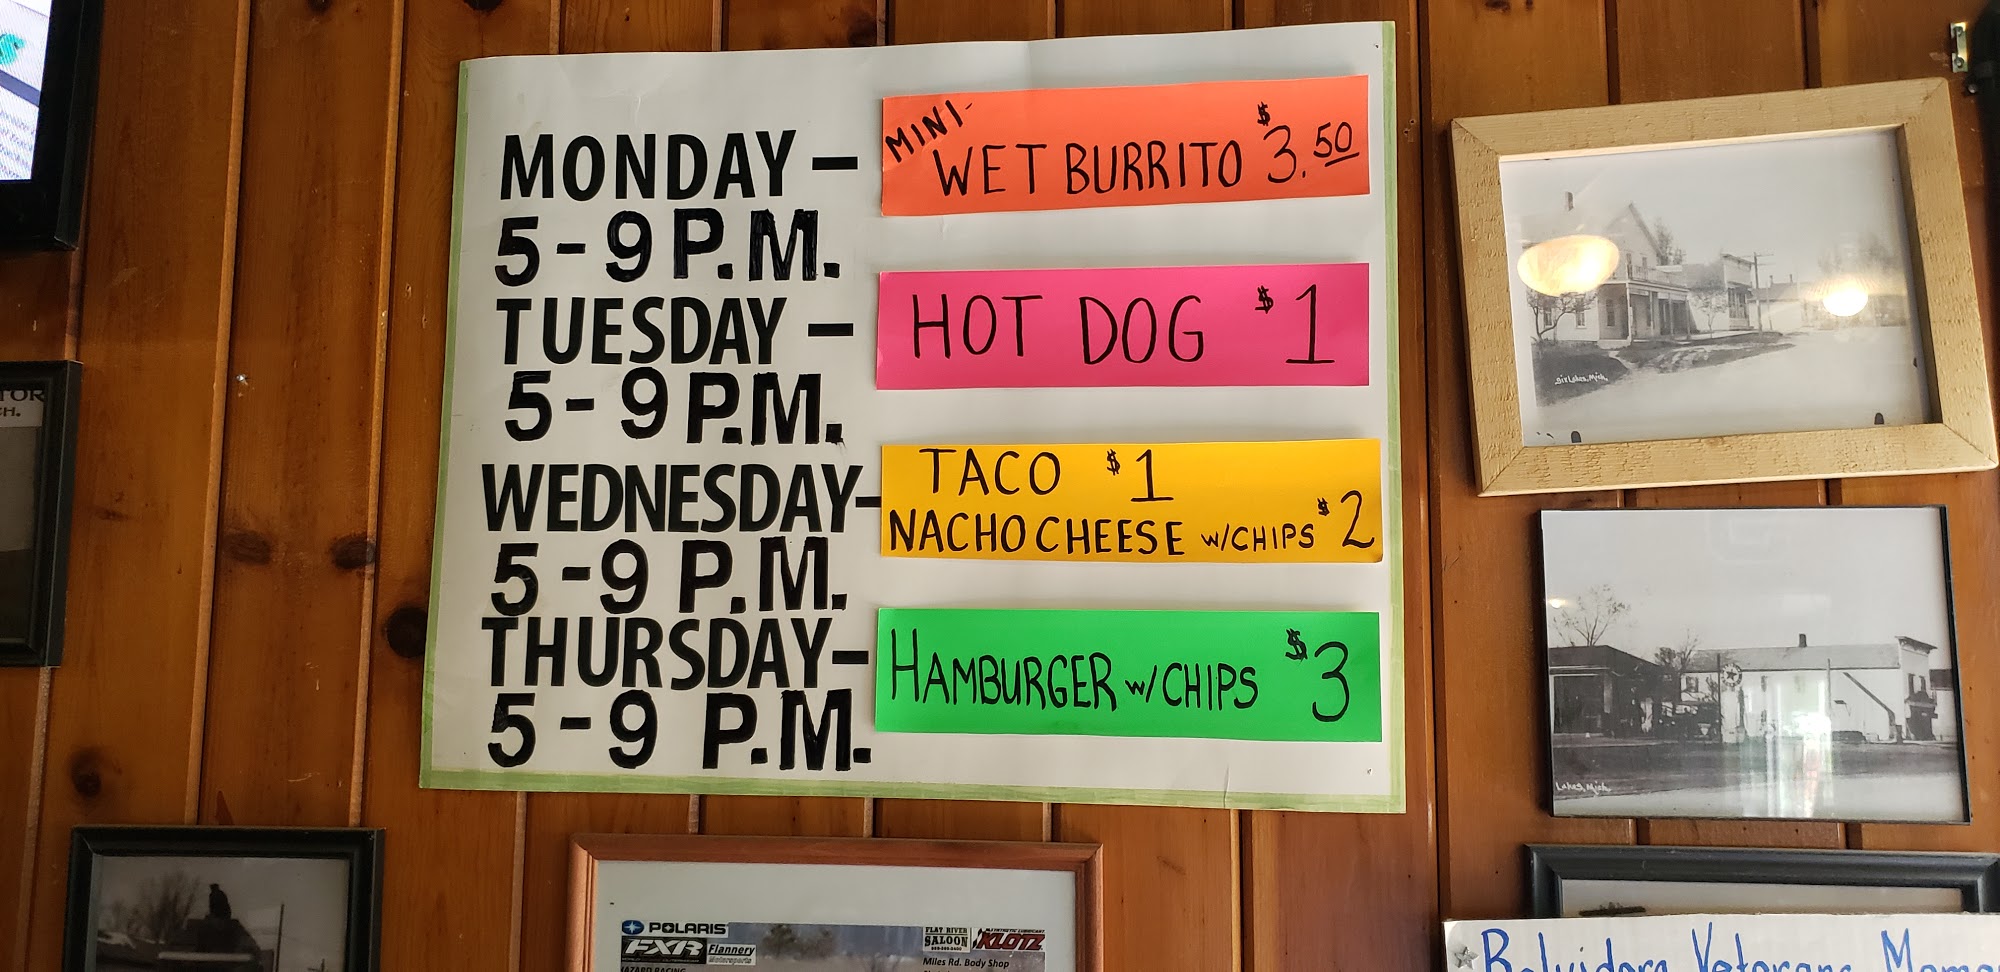 MONDAY -
5-9 P.M.
MINI-
WET BURRITO $3.50
TUESDAY -
5-9 P.M.
HOT DOG $1
WEDNESDAY-
5-9 P.M.
TACO $1
NACHO CHEESE w/CHIPS $2
THURSDAY-
5-9 P.M.
HAMBURGER w/CHIPS $3
TOR
CH.
Six Lakes, Mich.
Lakes, Mich.
POLARIS
FXR Flannery
Motorsports
HAZARD RACING
FLAT RIVER
SALOON
KLOTZ
Miles Rd. Body Shop
Belvidere Veterans Memo